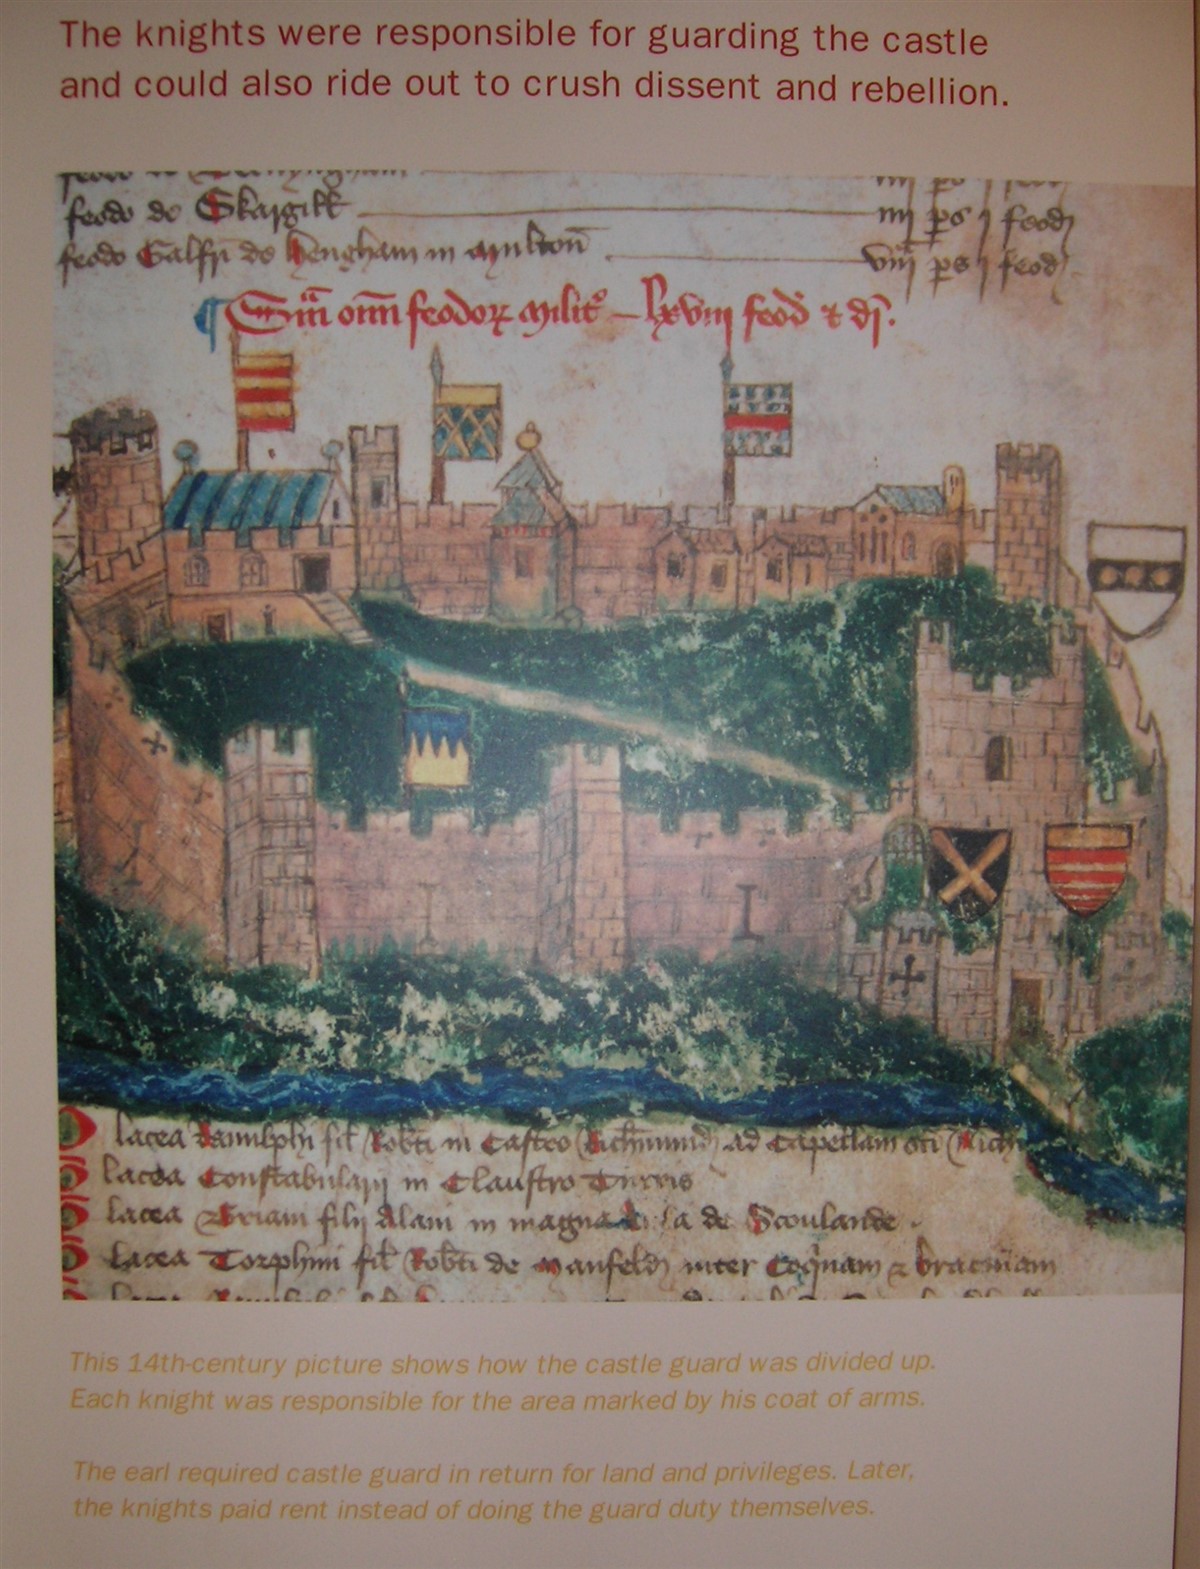 The knights were responsible for guarding the castle
and could also ride out to crush dissent and rebellion.
feodo de Skargill iiij ps j feodj
feodo Galfri de Hengham in Multon viij ps j feodj
Sma omn feodorz Milit lxviij feod & dj.
lacea Rannulphi fil Robti in Castro Richmund ad Capellam
lacea Constabularij in Claustro Turris
lacea Briani filij Alani in magna de Scoulande
lacea Torphini fil Robti de Manfeld inter Coqnam & bracinam
This 14th-century picture shows how the castle guard was divided up.
Each knight was responsible for the area marked by his coat of arms.
The earl required castle guard in return for land and privileges. Later,
the knights paid rent instead of doing the guard duty themselves.